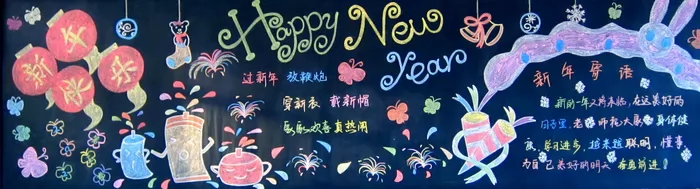 新年好
Happy New
Year
过新年 放鞭炮
穿新衣 戴新帽
欢欢喜喜真热闹
新年寄语
新的一年又将来临,在这美好的
日子里,老师祝大家:身体健
康、学习进步、越来越聪明、懂事,
为自己美好的明天 奋勇前进!